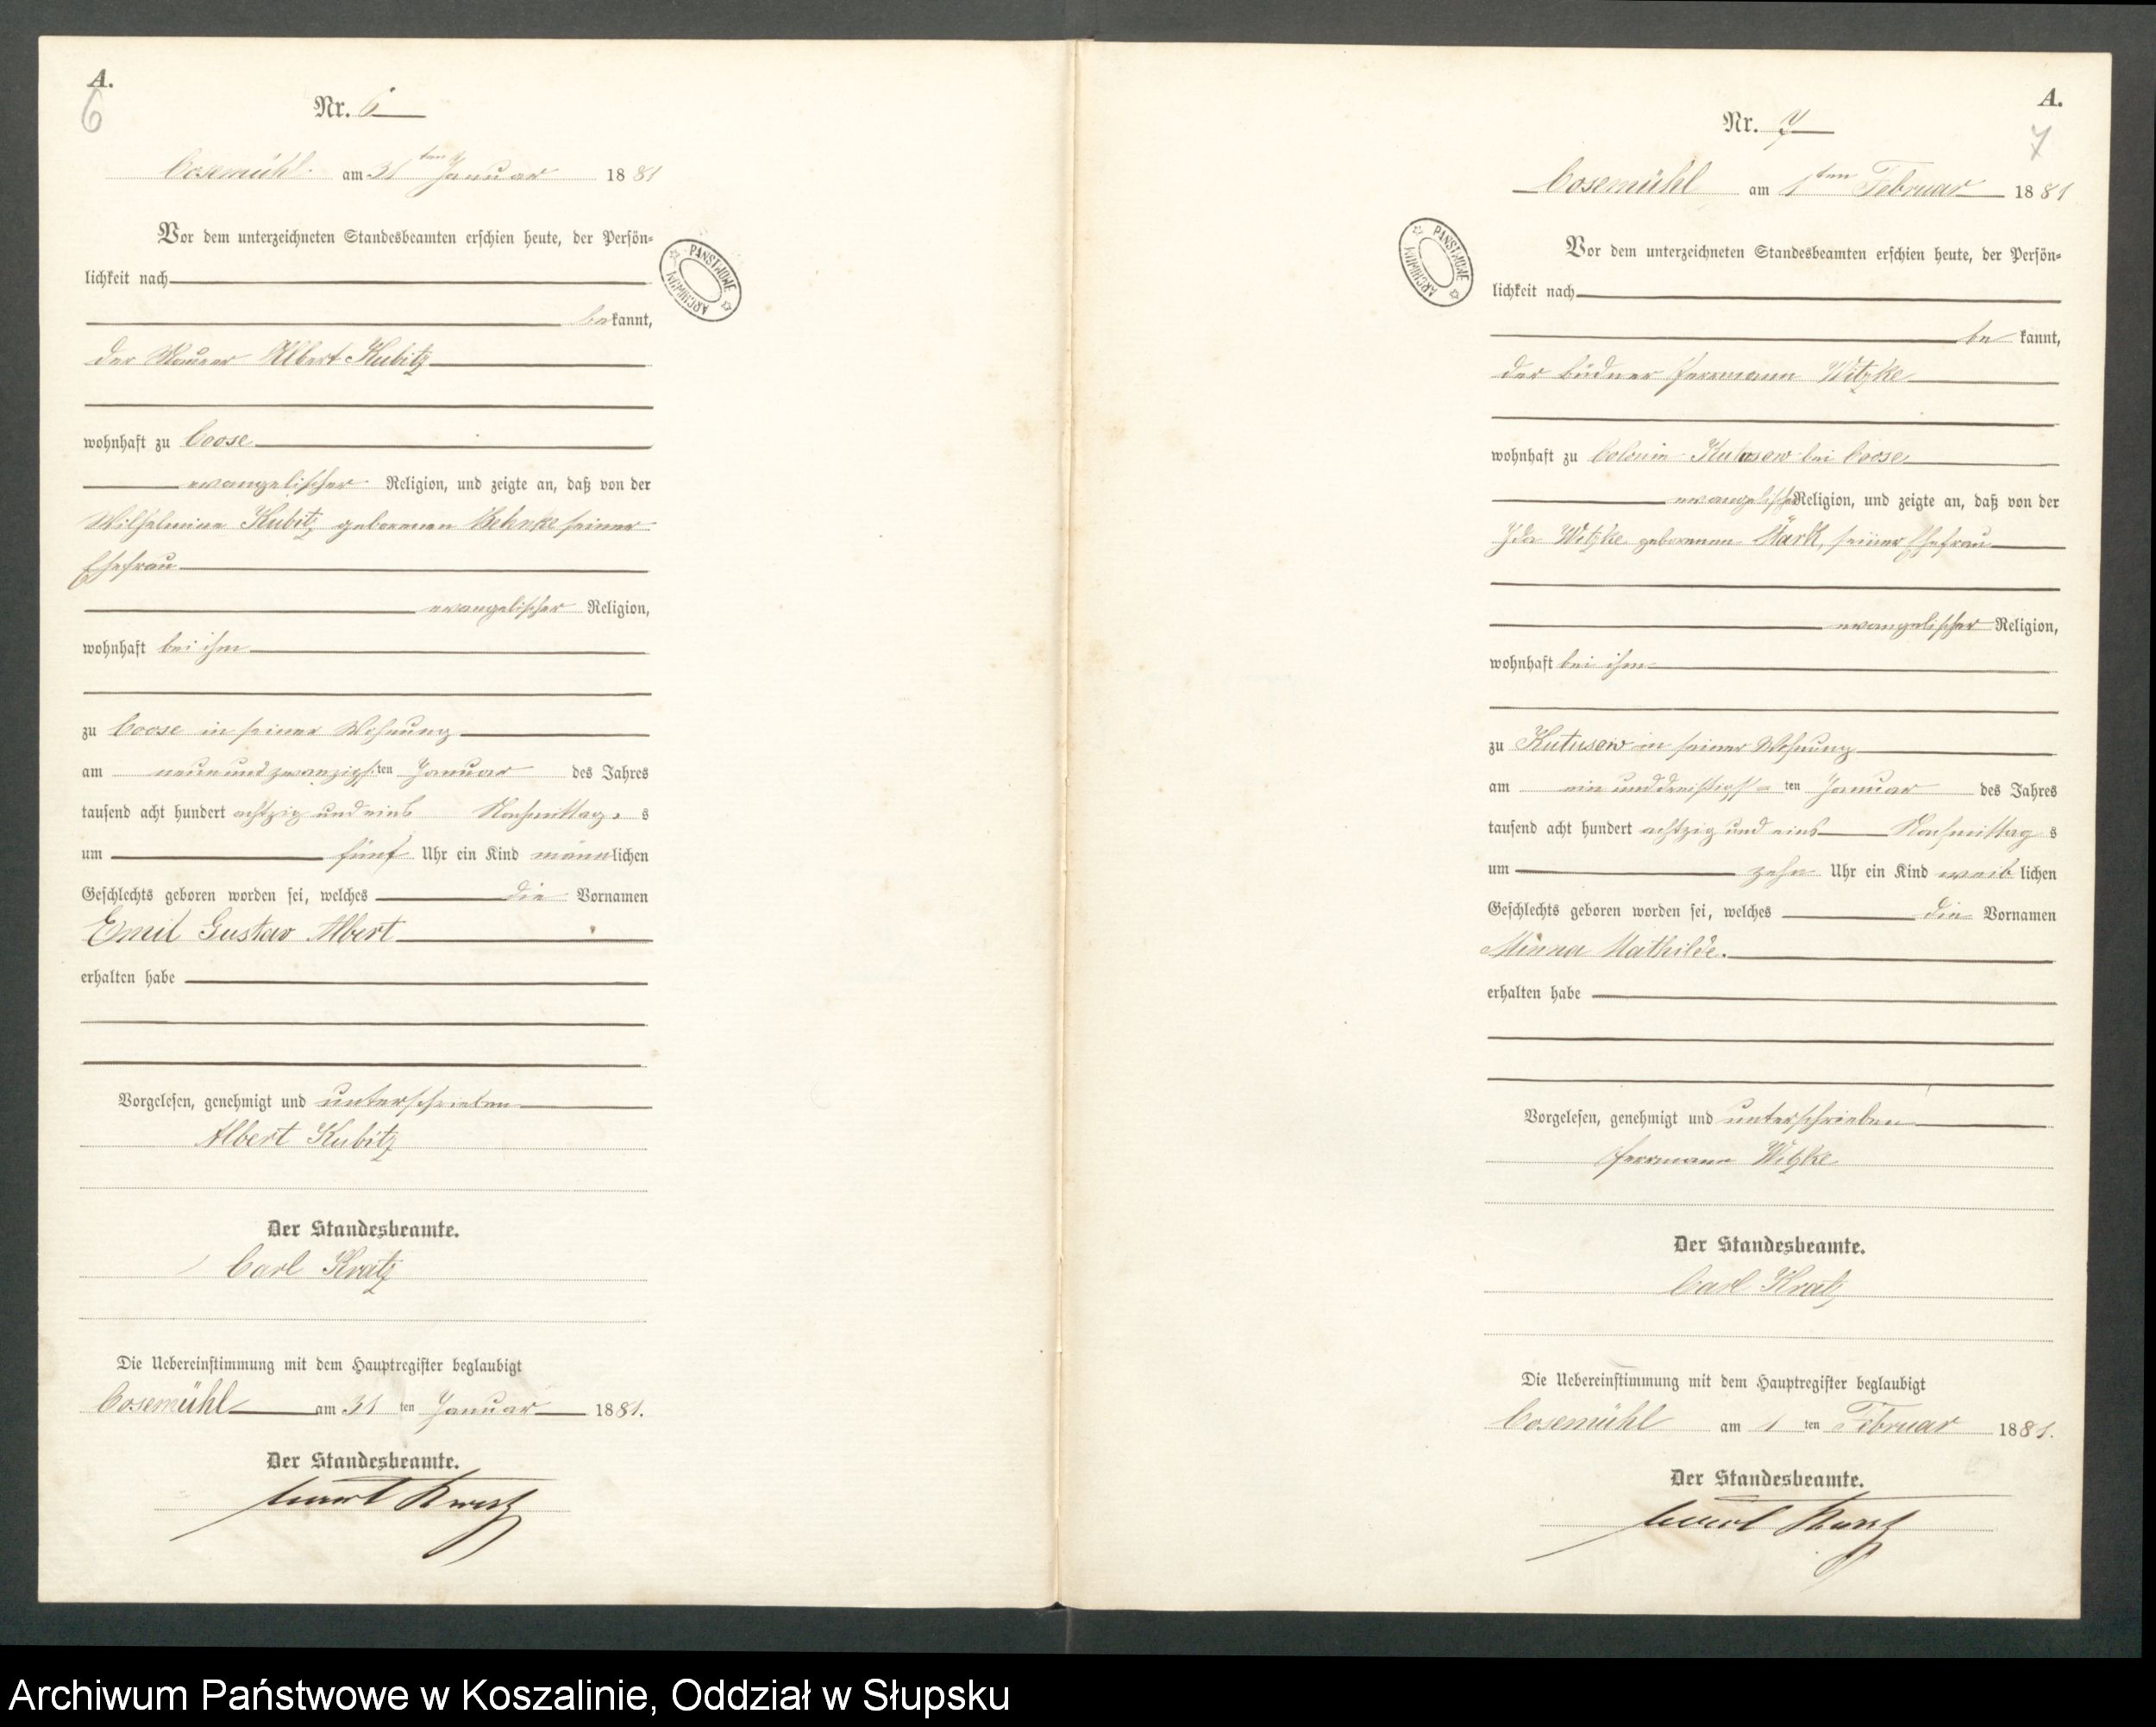 A.
6
Nr. 6
Cosemühl am 31ten Januar 1881
Vor dem unterzeichneten Standesbeamten erschien heute, der Persön=
lichkeit nach
bekannt,
der Maurer Albert Kubitz
wohnhaft zu Coose
evangelischer Religion, und zeigte an, daß von der
Wilhelmine Kubitz geborenen Behnke seiner
Ehefrau
evangelischer Religion,
wohnhaft bei ihm
zu Coose in seiner Wohnung
am neunundzwanzigsten Januar des Jahres
tausend acht hundert achtzig und eins Nachmittags
um fünf Uhr ein Kind männlichen
Geschlechts geboren worden sei, welches die Vornamen
Emil Gustav Albert
erhalten habe
Vorgelesen, genehmigt und unterschrieben
Albert Kubitz
Der Standesbeamte.
Carl Kratz
Die Uebereinstimmung mit dem Hauptregister beglaubigt
Cosemühl am 31ten Januar 1881.
Der Standesbeamte.
Carl Kratz
PAŃSTWOWE ARCHIWUM
A.
7
Nr. 7
Cosemühl am 1ten Februar 1881
Vor dem unterzeichneten Standesbeamten erschien heute, der Persön=
lichkeit nach
bekannt,
der Büdner Herrmann Witzke
wohnhaft zu Colonie Kutusow bei Coose
evangelischer Religion, und zeigte an, daß von der
Ida Witzke geborenen Märk, seiner Ehefrau
evangelischer Religion,
wohnhaft bei ihm
zu Kutusow in seiner Wohnung
am ein und dreißigsten Januar des Jahres
tausend acht hundert achtzig und eins Nachmittags
um zehn Uhr ein Kind weiblichen
Geschlechts geboren worden sei, welches die Vornamen
Minna Mathilde.
erhalten habe
Vorgelesen, genehmigt und unterschrieben
Herrmann Witzke
Der Standesbeamte.
Carl Kratz
Die Uebereinstimmung mit dem Hauptregister beglaubigt
Cosemühl am 1ten Februar 1881.
Der Standesbeamte.
Carl Kratz
PAŃSTWOWE ARCHIWUM
Archiwum Państwowe w Koszalinie, Oddział w Słupsku